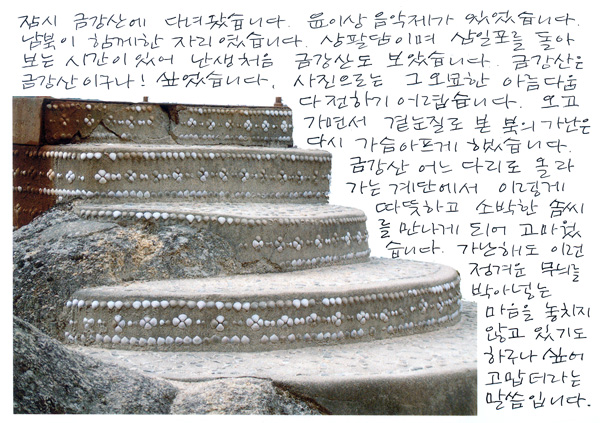 잠시 금강산에 다녀왔습니다. 윤이상 음악제가 있었습니다.
남북이 함께한 자리였습니다. 상팔담이며 삼일포를 돌아
보는 시간이 있어 난생처음 금강산도 보았습니다. 금강산은
금강산이구나! 싶었습니다. 사진으로는 그 오묘한 아름다움
다 전하기 어렵습니다. 오고
가면서 곁눈질로 본 북의 가난은
다시 가슴아프게 했습니다.
금강산 어느 다리로 올라
가는 계단에서 이렇게
따뜻하고 소박한 솜씨
를 만나게 되어 고마웠
습니다. 가난해도 이런
정겨운 무늬를
박아넣는
마음을 놓치지
않고 있기도
하구나 싶어
고맙더라는
말씀입니다.